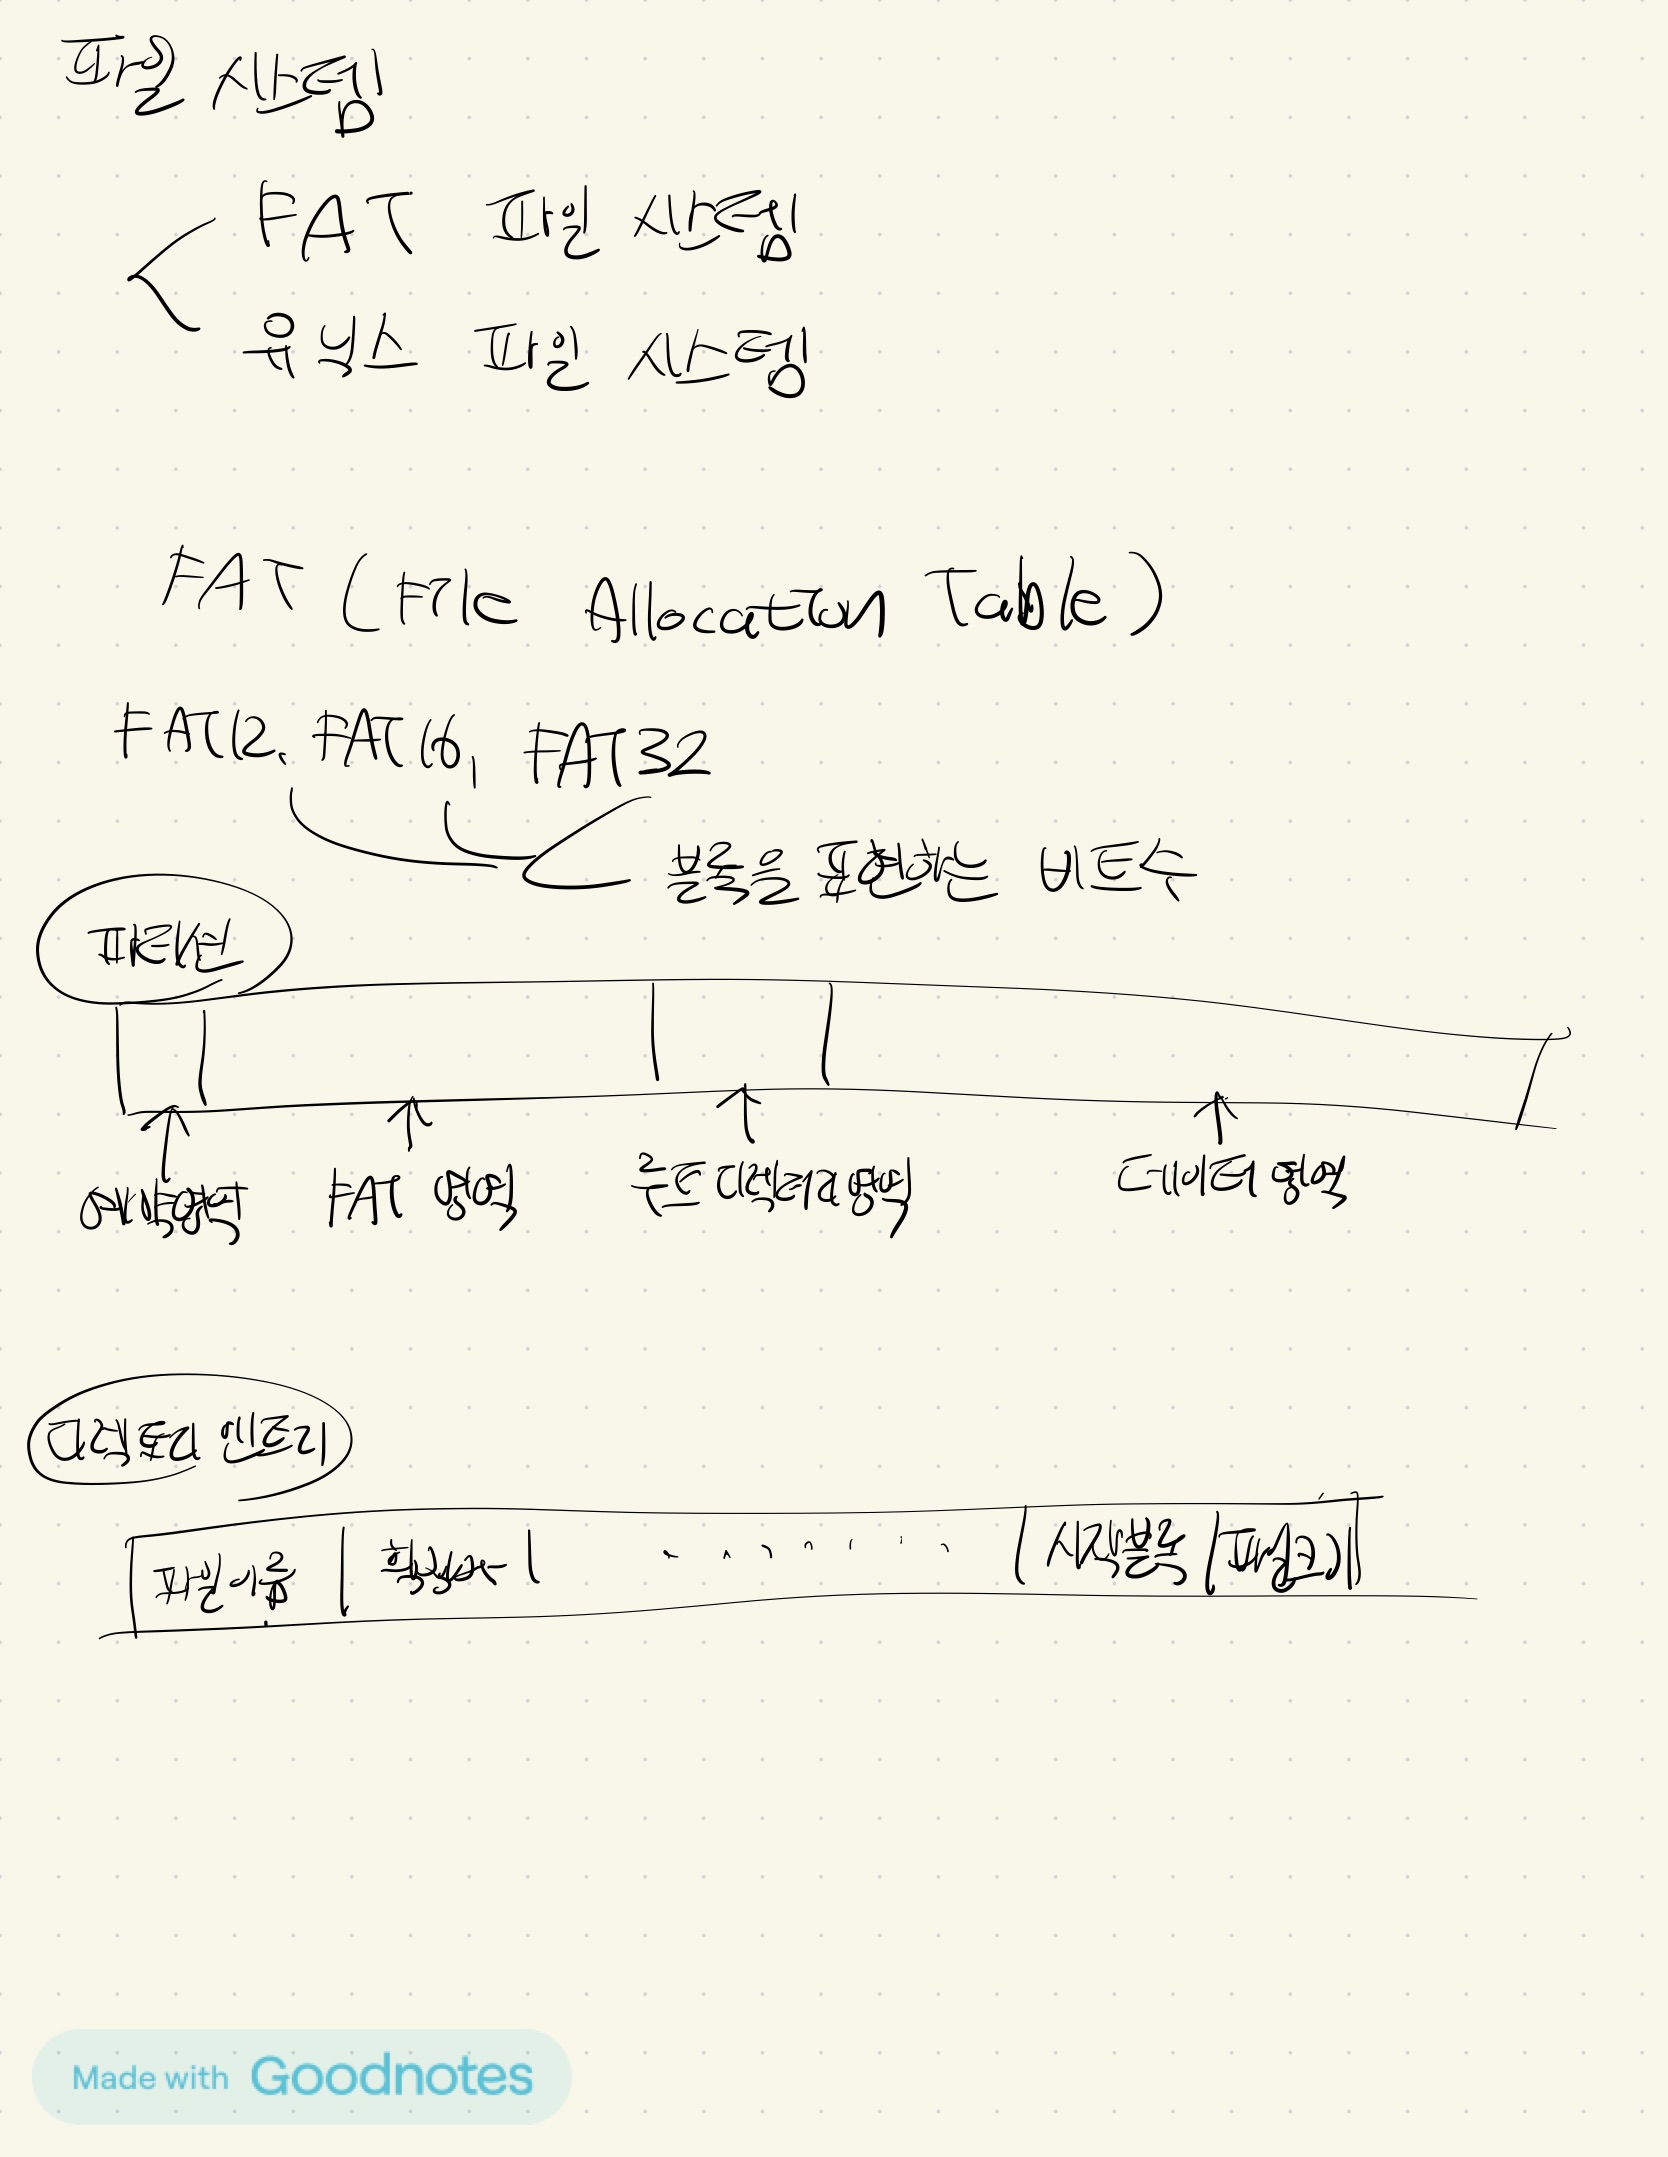 파일 시스템
FAT 파일 시스템
유닉스 파일 시스템
FAT (File Allocation Table)
FAT12, FAT16, FAT32
블록을 표현하는 비트수
파티션
예약영역 FAT 영역 루트 디렉터리 영역 데이터 영역
디렉토리 엔트리
파일이름 확장자 ....... 시작블록 파일크기
Made with Goodnotes